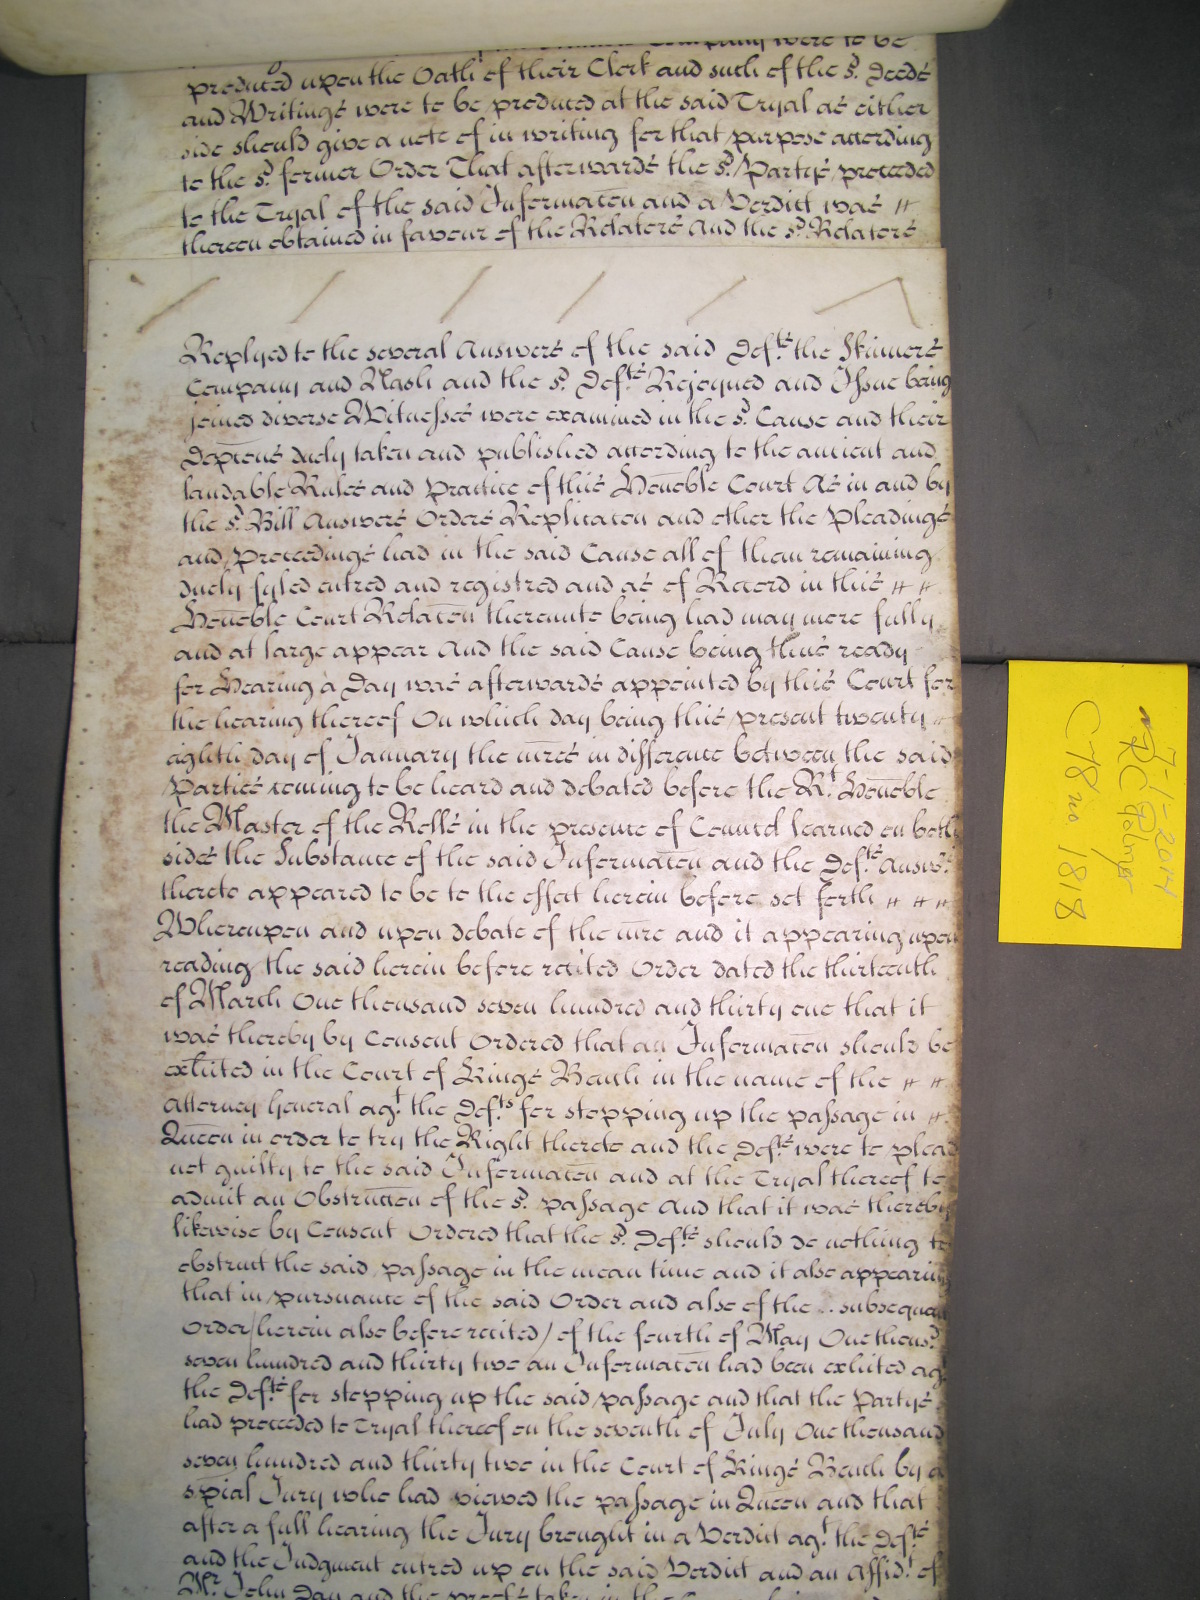 Company were to be
produced upon the Oath of their Clerk and such of the sd. Deeds
and Writings were to be produced at the said Tryal as either
side should give a note of in writing for that purpose according
to the sd. former Order That afterwards the sd. Partys proceeded
to the Tryal of the said Informacon and a Verdict was
thereon obtained in favour of the Relators And the sd. Relators
Replyed to the several Answers of the said Defts. the Skinners
Company and Nash and the sd. Defts. Rejoyned and Issue being
joined diverse Witnesses were examined in the sd. Cause and their
Depicons duely taken and published according to the antient and
laudable Rules and Practice of this Honoble Court As in and by
the sd. Bill Answers Orders Replicacon and other the Pleadings
and Proceedings had in the said Cause all of them remaining
duely fyled entred and registred and as of Record in this
Honoble Court Relacon thereunto being had may more fully
and at large appear And the said Cause being thus ready
for Hearing a Day was afterwards appointed by this Court for
the hearing thereof On which day being this present twenty
eighth day of January the mres in difference between the said
Parties coming to be heard and debated before the Rt. Honoble
the Master of the Rolls in the presence of Councel learned on both
sides the Substance of the said Informacon and the Defts. Answrs.
thereto appeared to be to the effect herein before set forth
Whereupon and upon debate of the mre and it appearing upon
reading the said herein before recited Order dated the thirteenth
of March One thousand seven hundred and thirty one that it
was thereby by Consent Ordered that an Informacon should be
exhited in the Court of Kings Bench in the name of the
Attorney General agt. the Defts for stopping up the passage in
Queen in order to try the Right thereto and the Defts. were to plead
not guilty to the said Informacon and at the Tryal thereof to
admit an Obstruccon of the sd. passage And that it was thereby
likewise by Consent Ordered that the sd. Defts. should do nothing to
obstruct the said passage in the mean time and it also appearing
that in pursuance of the said Order and also of the subsequent
Order (herein also before recited) of the fourth of May One thousd.
seven hundred and thirty two an Informacon had been exhited agt.
the Defts. for stopping up the said passage and that the Partys
had proceeded to Tryal thereof on the seventh of July One thousand
seven hundred and thirty two in the Court of Kings Bench by a
spial Jury who had viewed the passage in Queen and that
after a full hearing the Jury brought in a Verdict agt. the Defts.
and the Judgment entred up on the said Verdict and an Affidt. of
Mr. John Day and the proofs taken in the
7-1-2014
C 78 no 1818